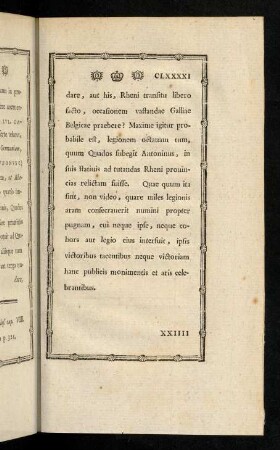 CLXXXXI
dare, aut his, Rheni transitu libero
facto, occasionem vastandae Galliae
Belgicae praebere? Maxime igitur pro-
babile est, legionem octauam tum,
quum Quados subegit Antoninus, in
suis statiuis ad tutandas Rheni prouin-
cias relictam fuisse. Quae quum ita
sint, non video, quare miles legionis
aram consecrauerit numini propter
pugnam, cui neque ipse, neque co-
hors aut legio eius interfuit, ipsis
victoribus tacentibus neque victoriam
hanc publicis monimentis et aris cele-
brantibus.
XXIIII